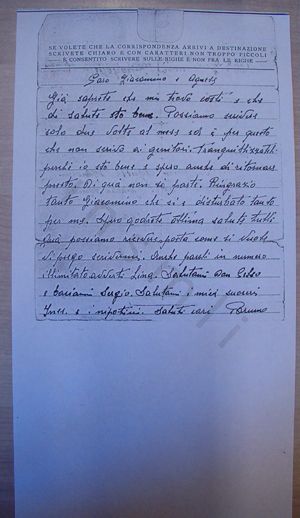 SE VOLETE CHE LA CORRISPONDENZA ARRIVI A DESTINAZIONE
SCRIVETE CHIARO E CON CARATTERI NON TROPPO PICCOLI
E CONSENTITO SCRIVERE SULLE RIGHE E NON FRA LE RIGHE
Caro Giacomino e Agnese
Già saprete che mi trovo costì e che
di salute sto bene. Possiamo scrivere
solo due volte al mese ed è per questo
che non scrivo ai genitori. Tranquillizzateli
perchè io sto bene e spero anche di ritornare
presto. Di qua non si parte. Ringrazio
tanto Giacomino che si è disturbato tanto
per me. Spero godrete ottima salute tutti
Qua possiamo ricevere posta come si vuole
vi prego scrivermi. Anche pacchi in numero
illimitato avverti Lina. Salutami Don
e baciami Sergio. Salutami i miei suoceri
e i nipotini. Saluti cari Bruno